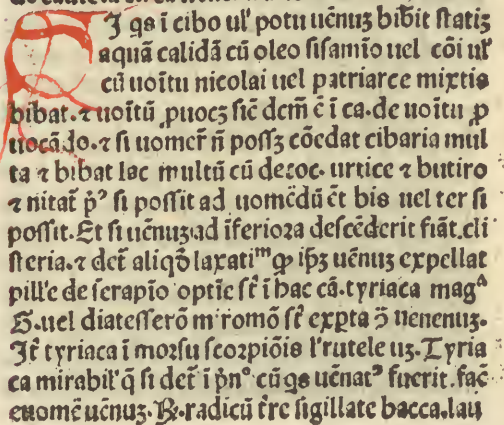 Iʒ qs i cibo ul' potu uēnuʒ bibit statiʒ
aquā calidā cū oleo sisamio uel cōi ul'
cū uoītu nicolai uel patriarce mixtis
bibat. ⁊ uoītū ꝓuoceʒ sic̄ dcm̄ ē i ca. de uoītu ꝓ
uocādo. ⁊ si uomer̄ n̄ possʒ cōedat cibaria mul
ta ⁊ bibat lac multū cū decoc. urtice ⁊ butiro
⁊ nitat̄ p̓⁹ si possit ad uomēdū ēt bis uel ter si
possit. Et si uēnuʒ ad iferiora descēderit fiāt. cli
steria. ⁊ det̄ aliqō laxatiᵐ ꝙ ip̄ʒ uēnuʒ expellat
pill'e de serapīo optie st̄ i hac cā. tyriaca magᵃ
G. uel diatesserō m romō st̄ expta ↄ̄ uenenuʒ.
It̄ tyriaca i morsu scorpiōis l'rutele uʒ. Tyria
ca mirabil' q̄ si det̄ i pn̄° cū qs uēnat⁹ fuerit. fac̄
euomē uēnuʒ. ℞. radicū tr̄e sigillate bacca. lau